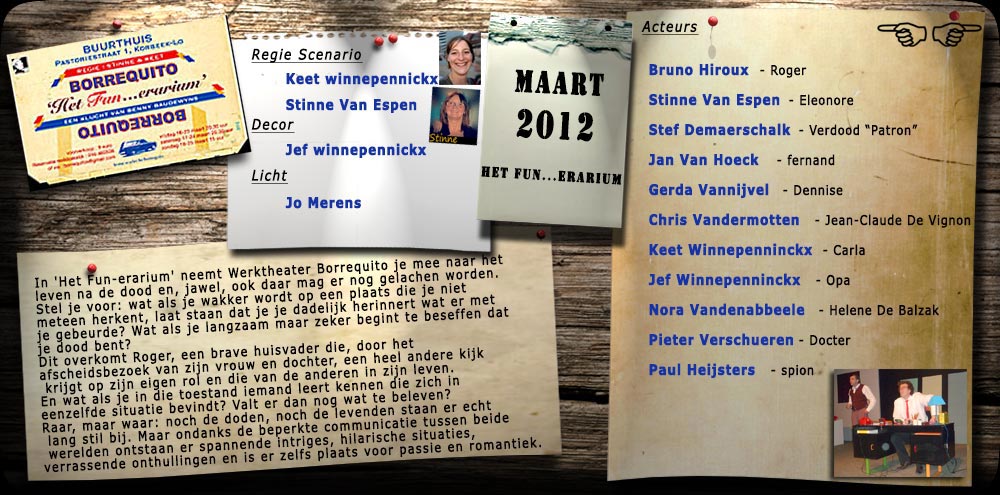 BUURTHUIS
PASTORIESTRAAT 1, KORBEEK-LO
REGIE: STINNE & KEET
BORREQUITO
'Het Fun...erarium'
EEN KLUCHT VAN BENNY BAUDEWYNS
BORREQUITO
Regie Scenario
Keet winnepennickx
Stinne Van Espen
Stinne
Decor
Jef winnepennickx
Licht
Jo Merens
MAART
2012
HET FUN...ERARIUM
Acteurs
Bruno Hiroux - Roger
Stinne Van Espen - Eleonore
Stef Demaerschalk - Verdood “Patron”
Jan Van Hoeck - fernand
Gerda Vannijvel - Dennise
Chris Vandermotten - Jean-Claude De Vignon
Keet Winnepenninckx - Carla
Jef Winnepenninckx - Opa
Nora Vandenabbeele - Helene De Balzak
Pieter Verschueren - Docter
Paul Heijsters - spion
In 'Het Fun-erarium' neemt Werktheater Borrequito je mee naar het
leven na de dood en, jawel, ook daar mag er nog gelachen worden.
Stel je voor: wat als je wakker wordt op een plaats die je niet
meteen herkent, laat staan dat je je dadelijk herinnert wat er met
je gebeurde? Wat als je langzaam maar zeker begint te beseffen dat
je dood bent?
Dit overkomt Roger, een brave huisvader die, door het
afscheidsbezoek van zijn vrouw en dochter, een heel andere kijk
krijgt op zijn eigen rol en die van de anderen in zijn leven.
En wat als je in die toestand iemand leert kennen die zich in
eenzelfde situatie bevindt? Valt er dan nog wat te beleven?
Raar, maar waar: noch de doden, noch de levenden staan er echt
lang stil bij. Maar ondanks de beperkte communicatie tussen beide
werelden ontstaan er spannende intriges, hilarische situaties,
verrassende onthullingen en is er zelfs plaats voor passie en romantiek.